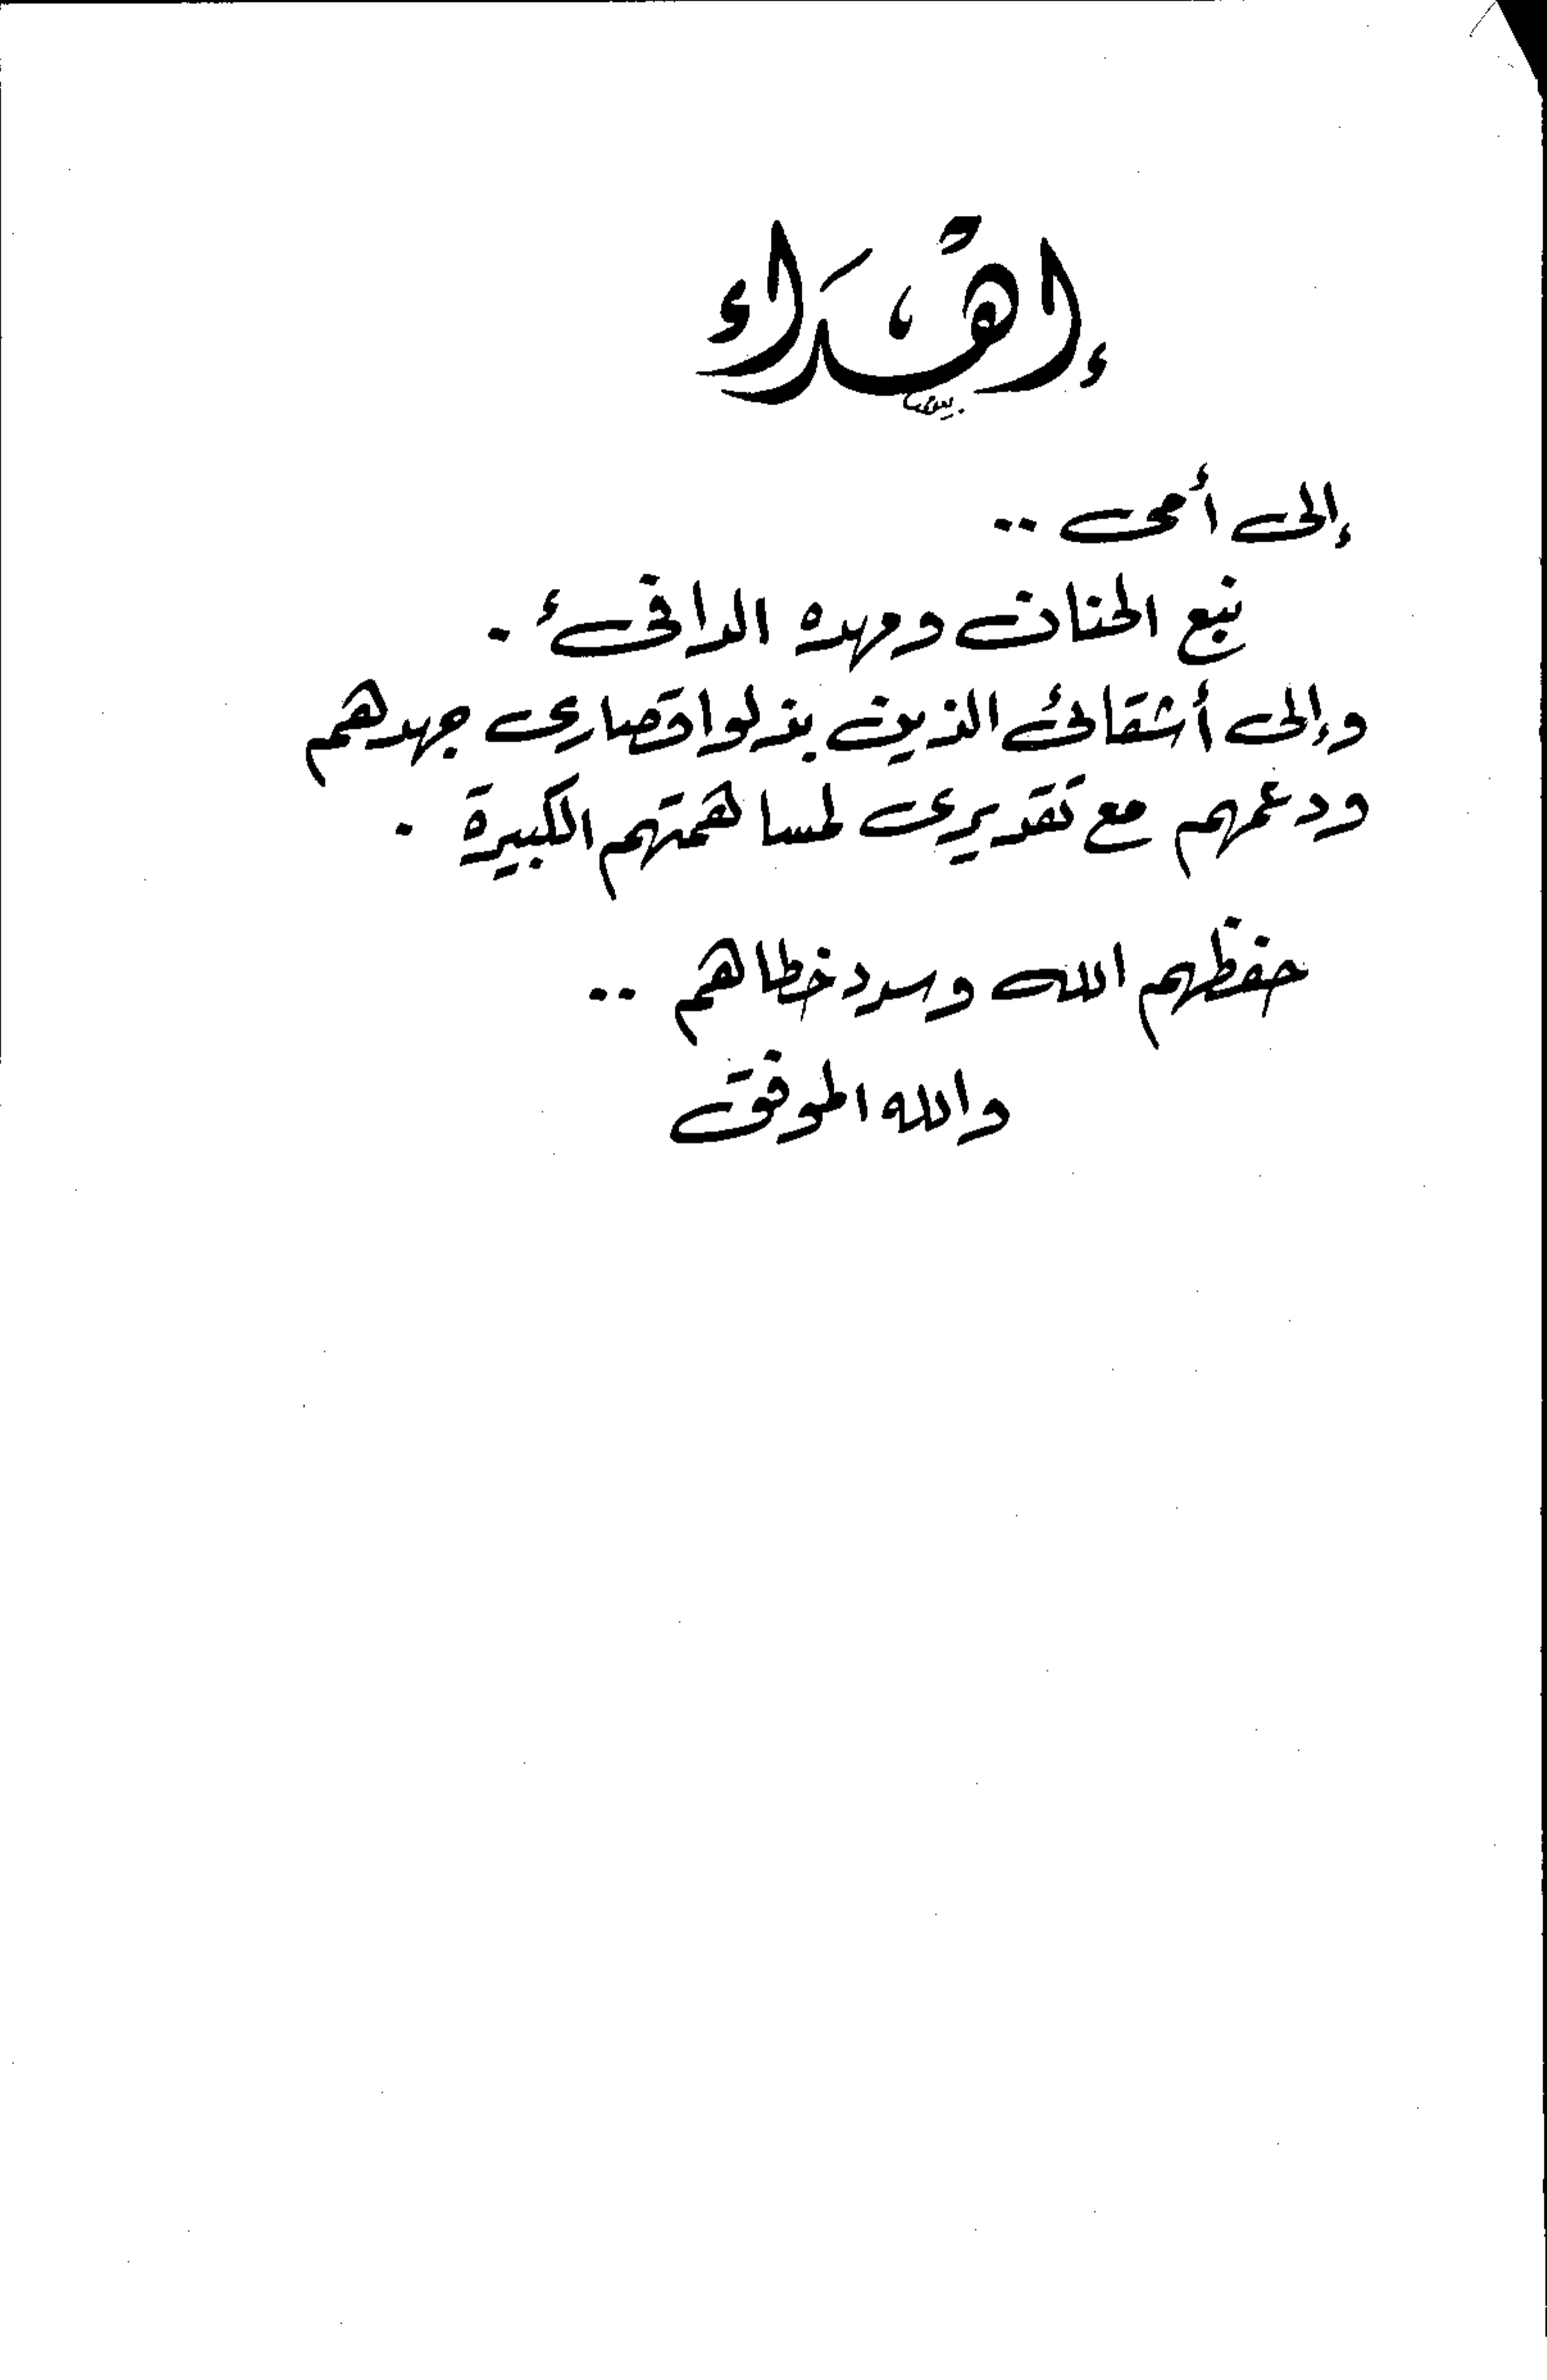 إهداء
إلى أمى ..
نبع الحنان ومهده الدافىء .
وإلى أشقائى الذين بذلوا قصارى جهدهم
ودعمهم مع تقديرى لمساهمتهم الكبيرة .
حفظهم الله وسدد خطاهم ..
والله الموفق